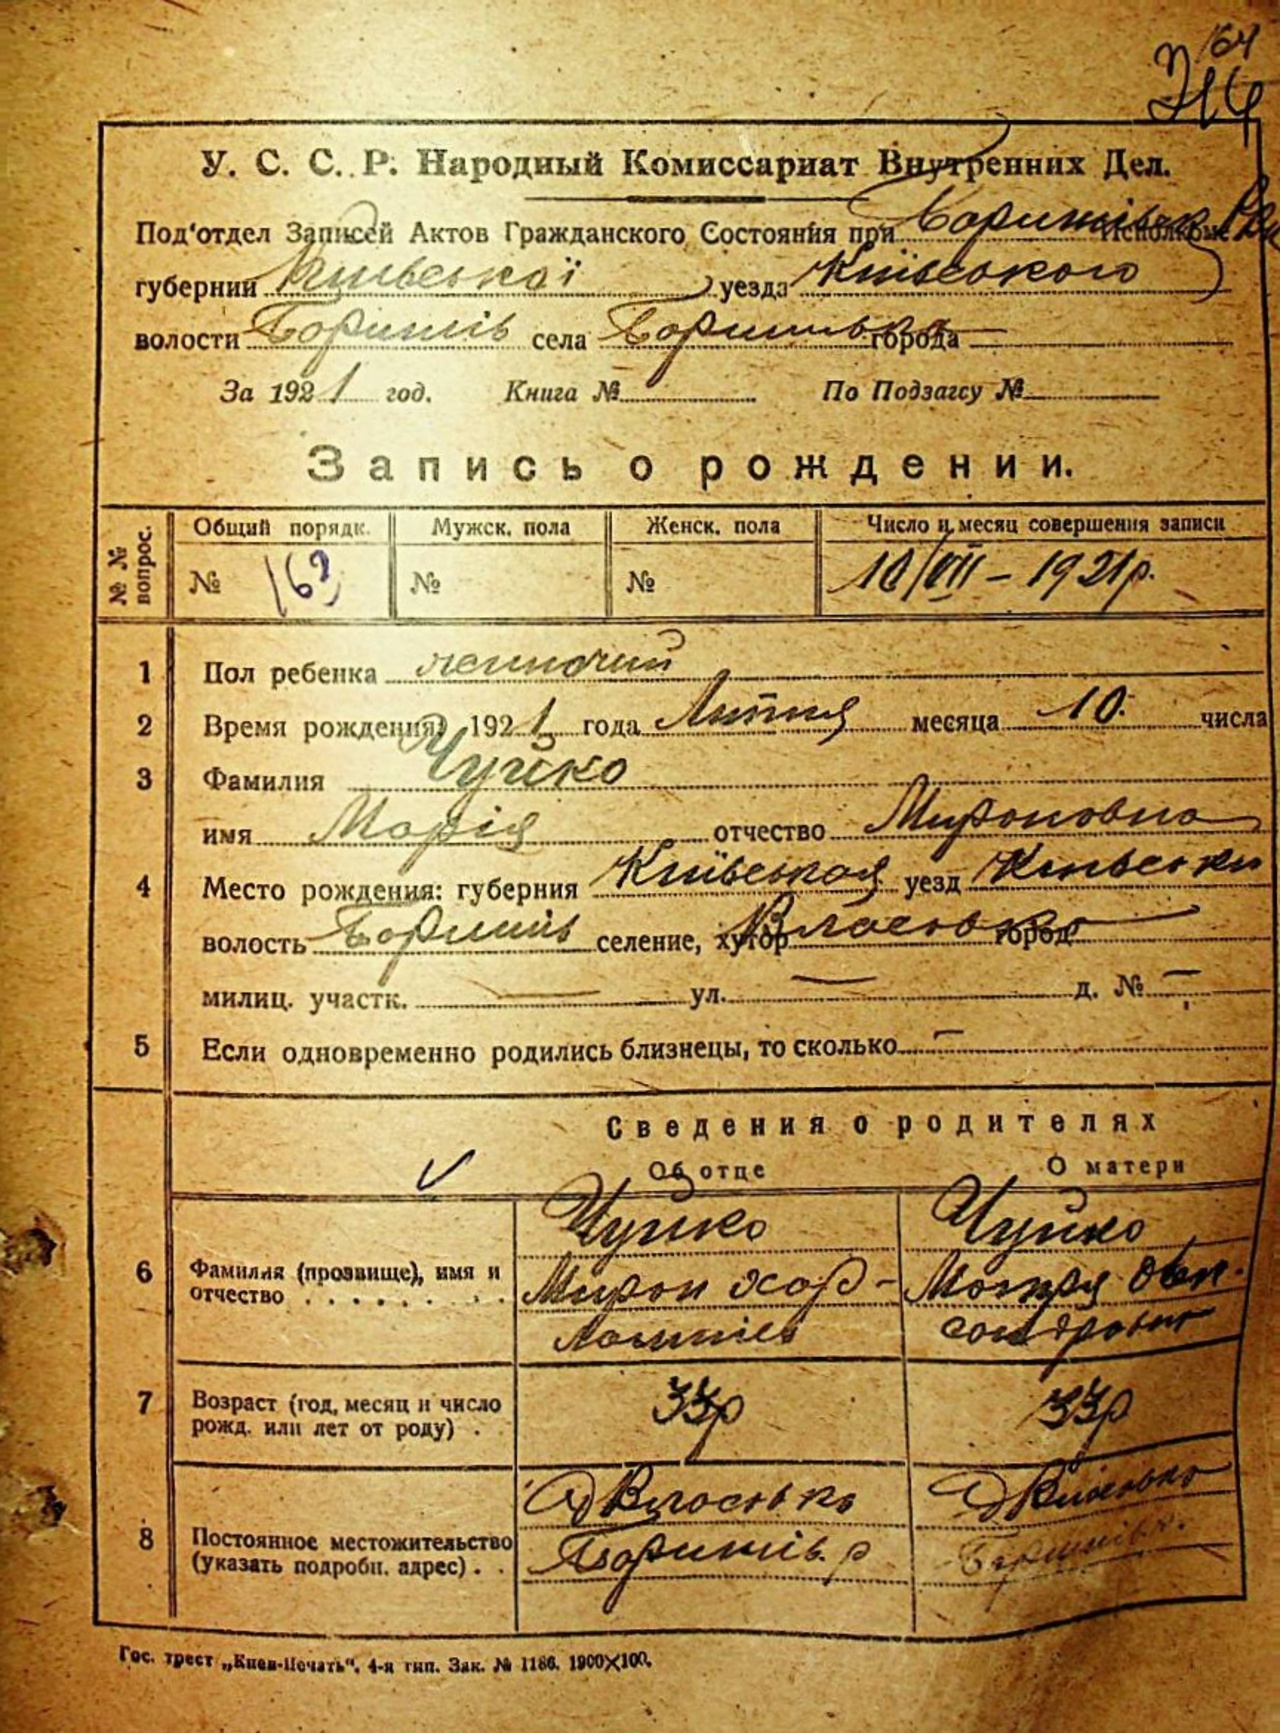 164
314
У. С. С. Р. Народный Комиссариат Внутренних Дел.
Под'отдел Записей Актов Гражданского Состояния при Исполкоме
губернии Київської уезда Київського
волости села города
За 1921 год. Книга № По Подзагсу №
Запись о рождении.
№ № вопрос. Общий порядк. Мужск. пола Женск. пола Число и месяц совершения записи
№ 162 № № 10/VII – 1921 р.
1 Пол ребенка жиночий
2 Время рождения: 1921 года Липня месяца 10. числа
3 Фамилия Чуйко
имя Марія отчество Мироновна
4 Место рождения: губерния Київськая уезд
волость селение, хутор город
милиц. участк. — ул. — д. № —
5 Если одновременно родились близнецы, то сколько —
Сведения о родителях
Об отце О матери
6 Фамилия (прозвище), имя и отчество . . . . . . . . Чуйко Чуйко
Мирон Мотря
7 Возраст (год, месяц и число рожд. или лет от роду) . 33 р 33 р
8 Постоянное местожительство (указать подробн. адрес) . .
Гос. трест „Киев-Печать“. 4-я тип. Зак. № 1186. 1900×100.